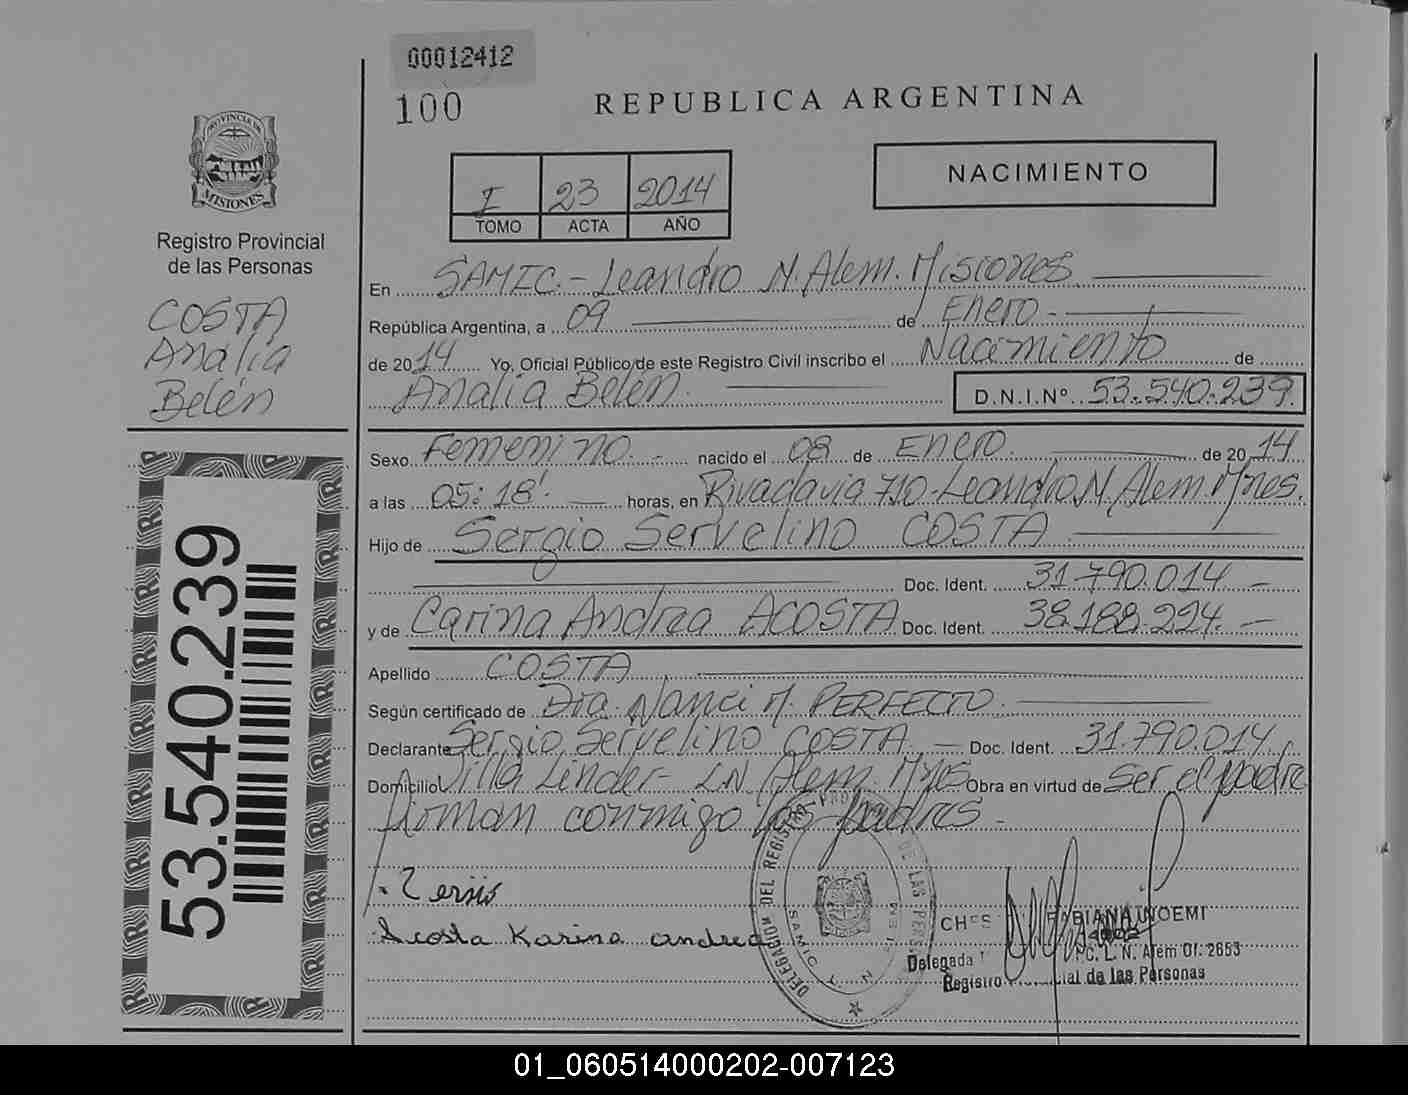 00012412
100
REPUBLICA ARGENTINA
PROVINCIA DE
MISIONES
Registro Provincial
de las Personas
COSTA
Analía
Belén
I 23 2014
TOMO ACTA AÑO
NACIMIENTO
En SAMIC.- Leandro N. Alem. Misiones
República Argentina, a 09 de Enero.-
de 2014 Yo, Oficial Público de este Registro Civil inscribo el Nacimiento de
Analía Belén. D.N.I.Nº 53.540.239.
Sexo Femenino.- nacido el 08 de Enero. de 2014
a las 05:18'. horas, en Rivadavia 710-Leandro N Alem Mnes.
Hijo de Sergio Servelino COSTA
Doc. Ident. 31.790.014.-
y de Carina Andrea ACOSTA Doc. Ident. 38.188.224.-
Apellido COSTA
Según certificado de Dra. Nanci M. PERFECTO.
Declarante Sergio Servelino COSTA.- Doc. Ident. 31.790.014.
Domicilio Villa Linder- L.N. Alem. Mnes Obra en virtud de Ser el padre
firman conmigo los padres.-
53.540.239
Acosta Karina andrea
DELEGACION DEL REGISTRO DE LAS PERS
SAMIC L. N. ALEM
FABIANA NOEMI
Delegada
C. L. N. Alem Of. 2653
Registro de las Personas
01_060514000202-007123